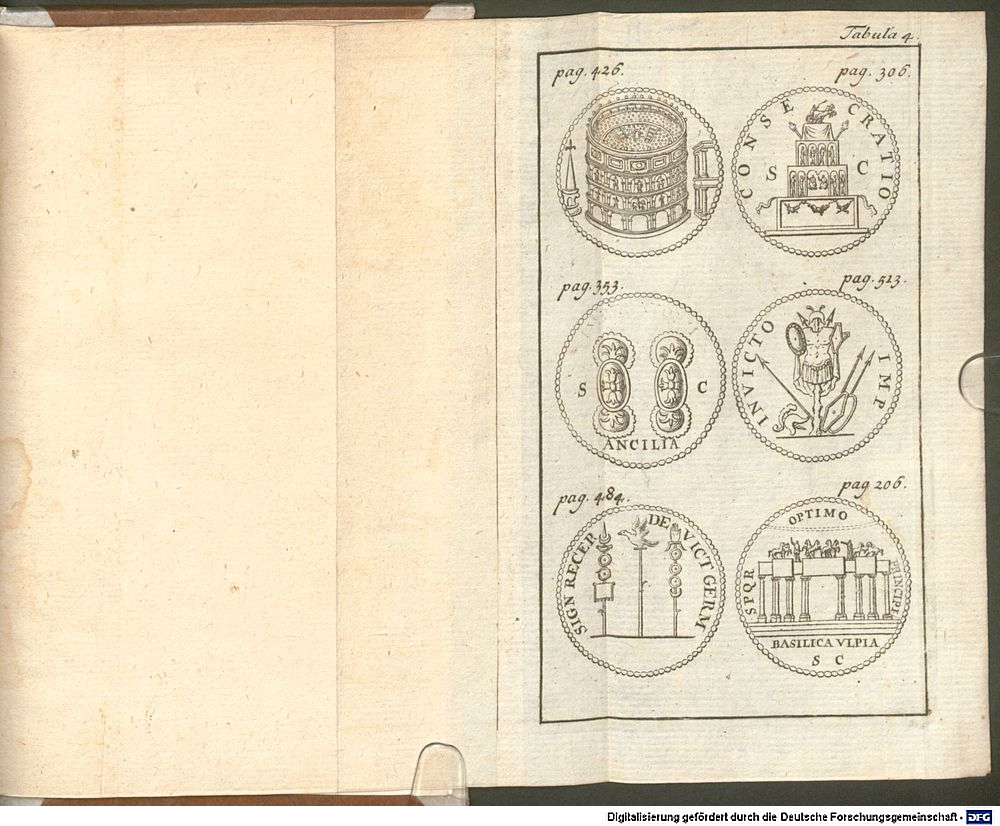 Tabula 4.
pag. 426.
pag. 306.
CONSECRATIO
S C
pag. 353.
pag. 513.
S C
ANCILIA
INVICTO IMP
pag. 484.
pag 206.
SIGN RECEP DE VICT GERM
OPTIMO
SPQR
PRINCIPI
BASILICA VLPIA
S C
Digitalisierung gefördert durch die Deutsche Forschungsgemeinschaft - DFG